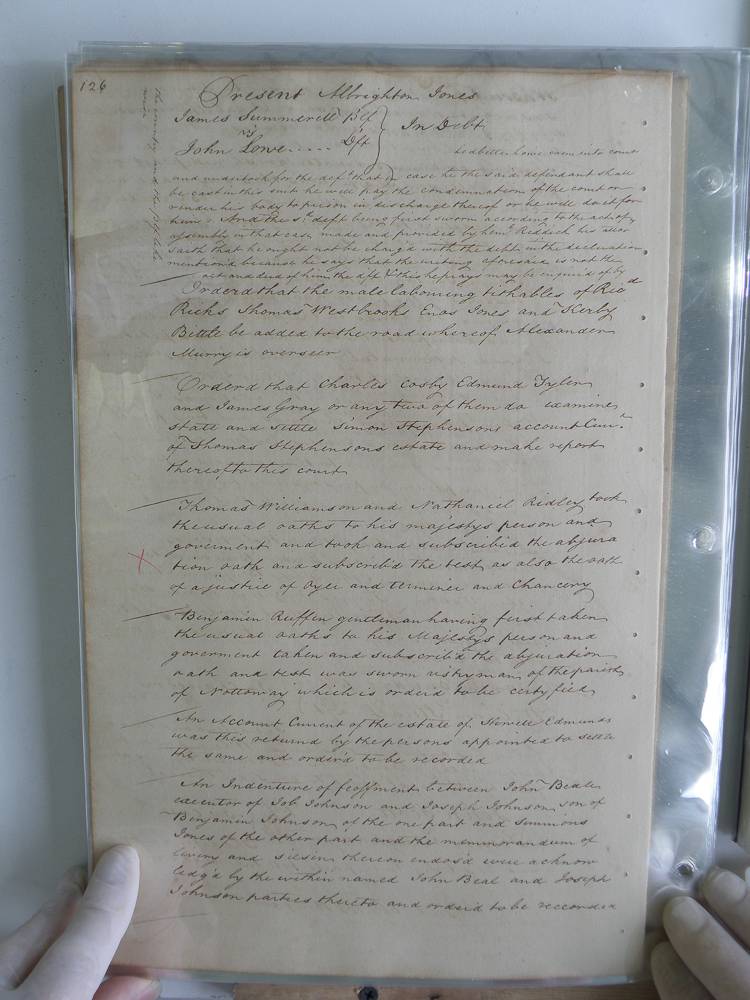 126
Present Albrighton Jones
James Summerell Plf
vs
In Debt
John Lowe ..... Dft
Ledbetter Lowe came into court
and undertook for the deft that in case he the said defendant shall
be cast in this suit he will pay the condemnation of the court or
render his body to prison in discharge thereof or he will do it for
him & And the sd deft being first sworn according to the act of
assembly in that case made and provided by Reddick his
saith that he ought not be charg'd with the debt in the declaration
mention'd because he says that the writing aforesaid is not the
act and deed of him the dft & this he prays may be enquir'd of by
the country and the plf likewise
Orderd that the male labouring tithables of Ricd
Ricks Thomas Westbrooks Enos Jones and Kerby
Bittle be added to the road whereof Alexander
Murry is overseer
Orderd that Charles Cosby Edmund Tyler
and James Gray or any two of them do examine
state and settle Simon Stephensons account Curt
of Thomas Stephensons estate and make report
thereof to this court
Thomas Williamson and Nathaniel Ridley took
the usual oaths to his majestys person and
goverment and took and subscrib'd the abjura
tion oath and subscrib'd the test as also the oath
of a justice of Oyer and terminer and Chancery
Benjamin Ruffin gentleman having first taken
the usual oaths to his Majestys person and
goverment taken and subscrib'd the abjuration
oath and test was sworn vestryman of the parish
of Nottoway which is order'd to be certyfied
An Account Current of the estate of Howell Edmunds
was this returned by the persons appointed to settle
the same and order'd to be recorded
An Indenture of feoffment between John Beale
executor of Job Johnson and Joseph Johnson son of
Benjamin Johnson of the one part and Simmons
Jones of the other part and the memmorandum of
livery and siesen thereon endors'd were acknow
ledg'd by the within named John Beal and Joseph
Johnson parties thereto and order'd to be reccorded